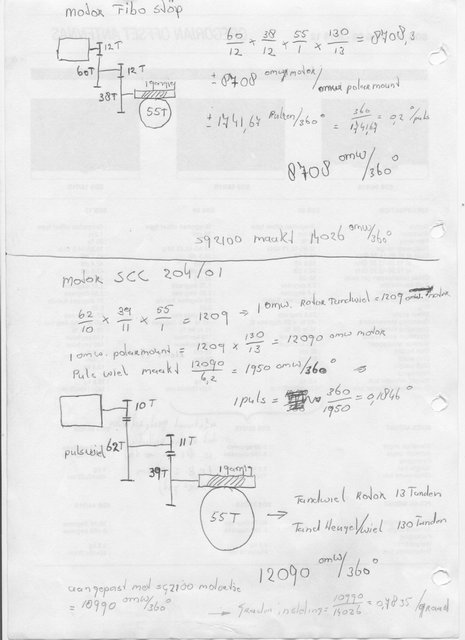 motor Fibo Stöp
60/12 x 38/12 x 55/1 x 130/13 = 8708,3
12T
60T
12T
± 8708 omw motor/
omw polarmount
38T
1 gang
55T
± 1741,67 Pulsen/360° = 360/1741,67 = 0,2°/puls
8708 omw/360°
SG2100 maakt 14026 omw/360°
motor SCC 204/01
62/10 x 39/11 x 55/1 = 1209 → 1 omw. Rotor Tandwiel = 1209 omw. motor
1 omw. polarmount = 1209 x 130/13 = 12090 omw motor
Puls wiel maakt 12090/6,2 = 1950 omw/360°
1 puls = 360/1950 = 0,1846°
10T
pulswiel 62T
11T
39T
1 gang
55T
→ Tandwiel Rotor 13 Tanden
Tand Heugel/wiel 130 Tanden
12090 omw/360°
aangepast met SG2100 motortje
= 10990 omw/360°
→ 10990/14026 = 0,7835/graad